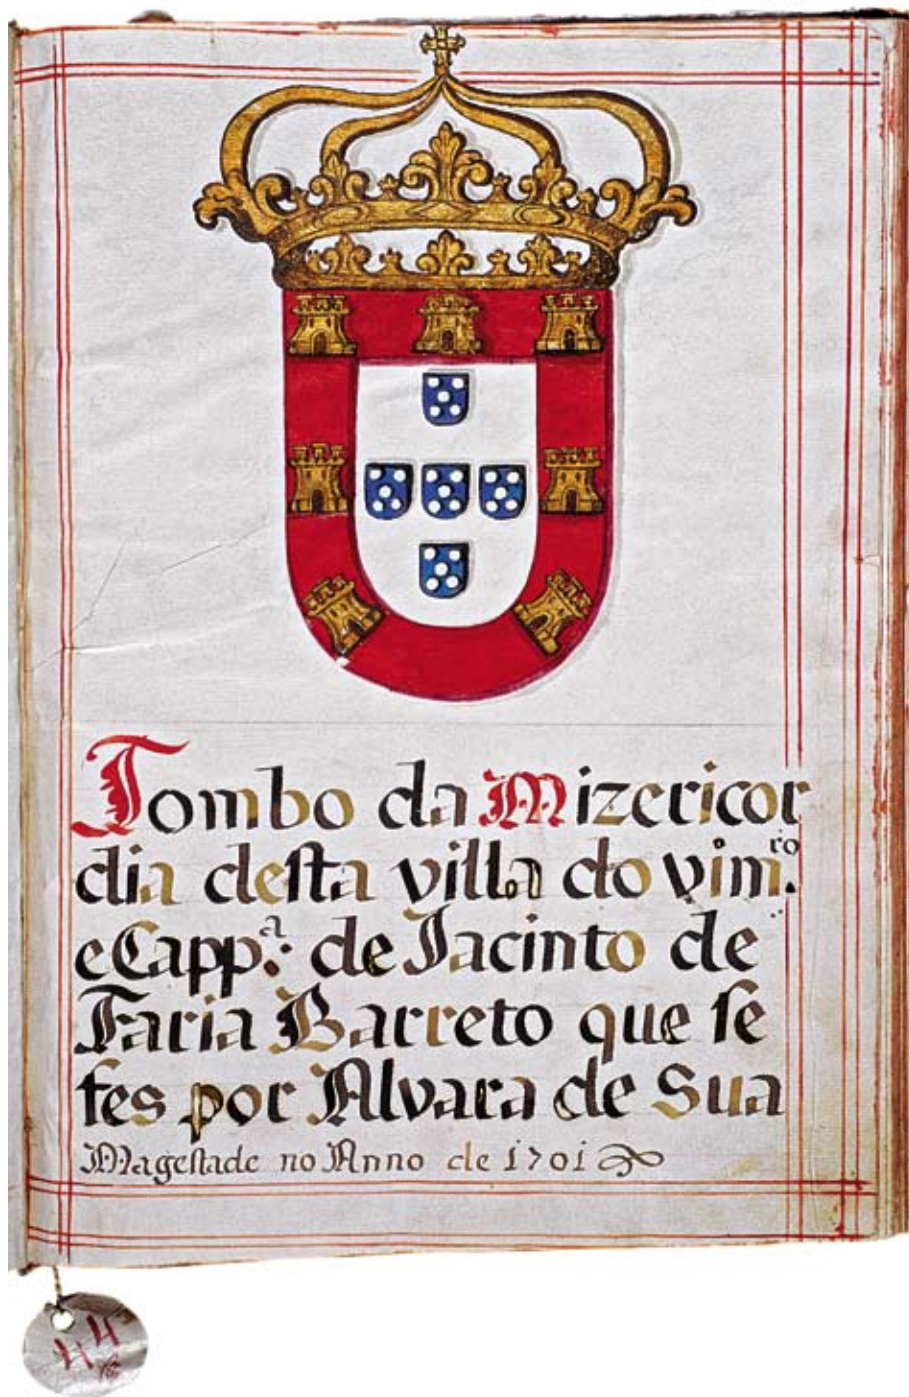 Tombo da Mizericor
dia deſta villa do vim.ʳᵒ
e Capp.ᵃ de Jacinto de
Faria Barreto que ſe
fes por Alvara de Sua
Mageſtade no Anno de 1701
44